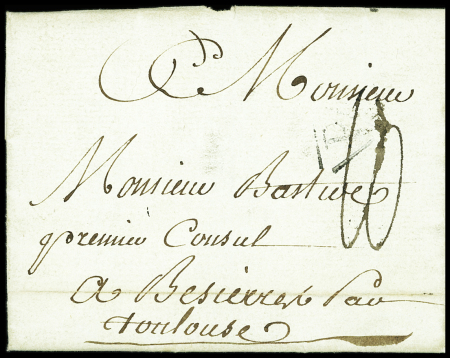 A Monsieur
Monsieur
premier Consul
a Besierres Par
toulouse